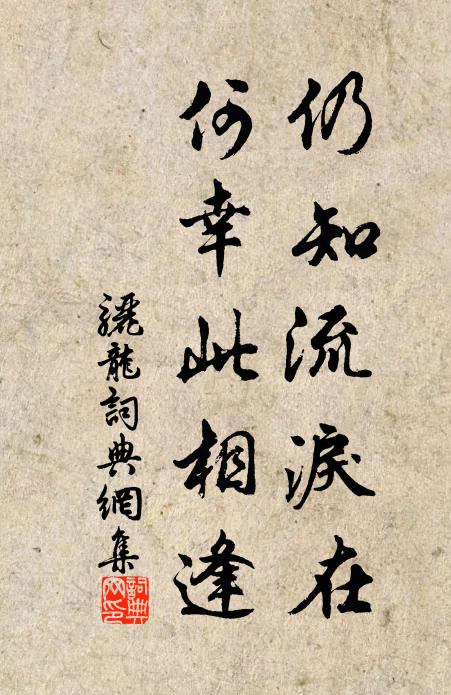 仍知流淚在
何幸此相逢
驪龍詞典網集
詞典
网印